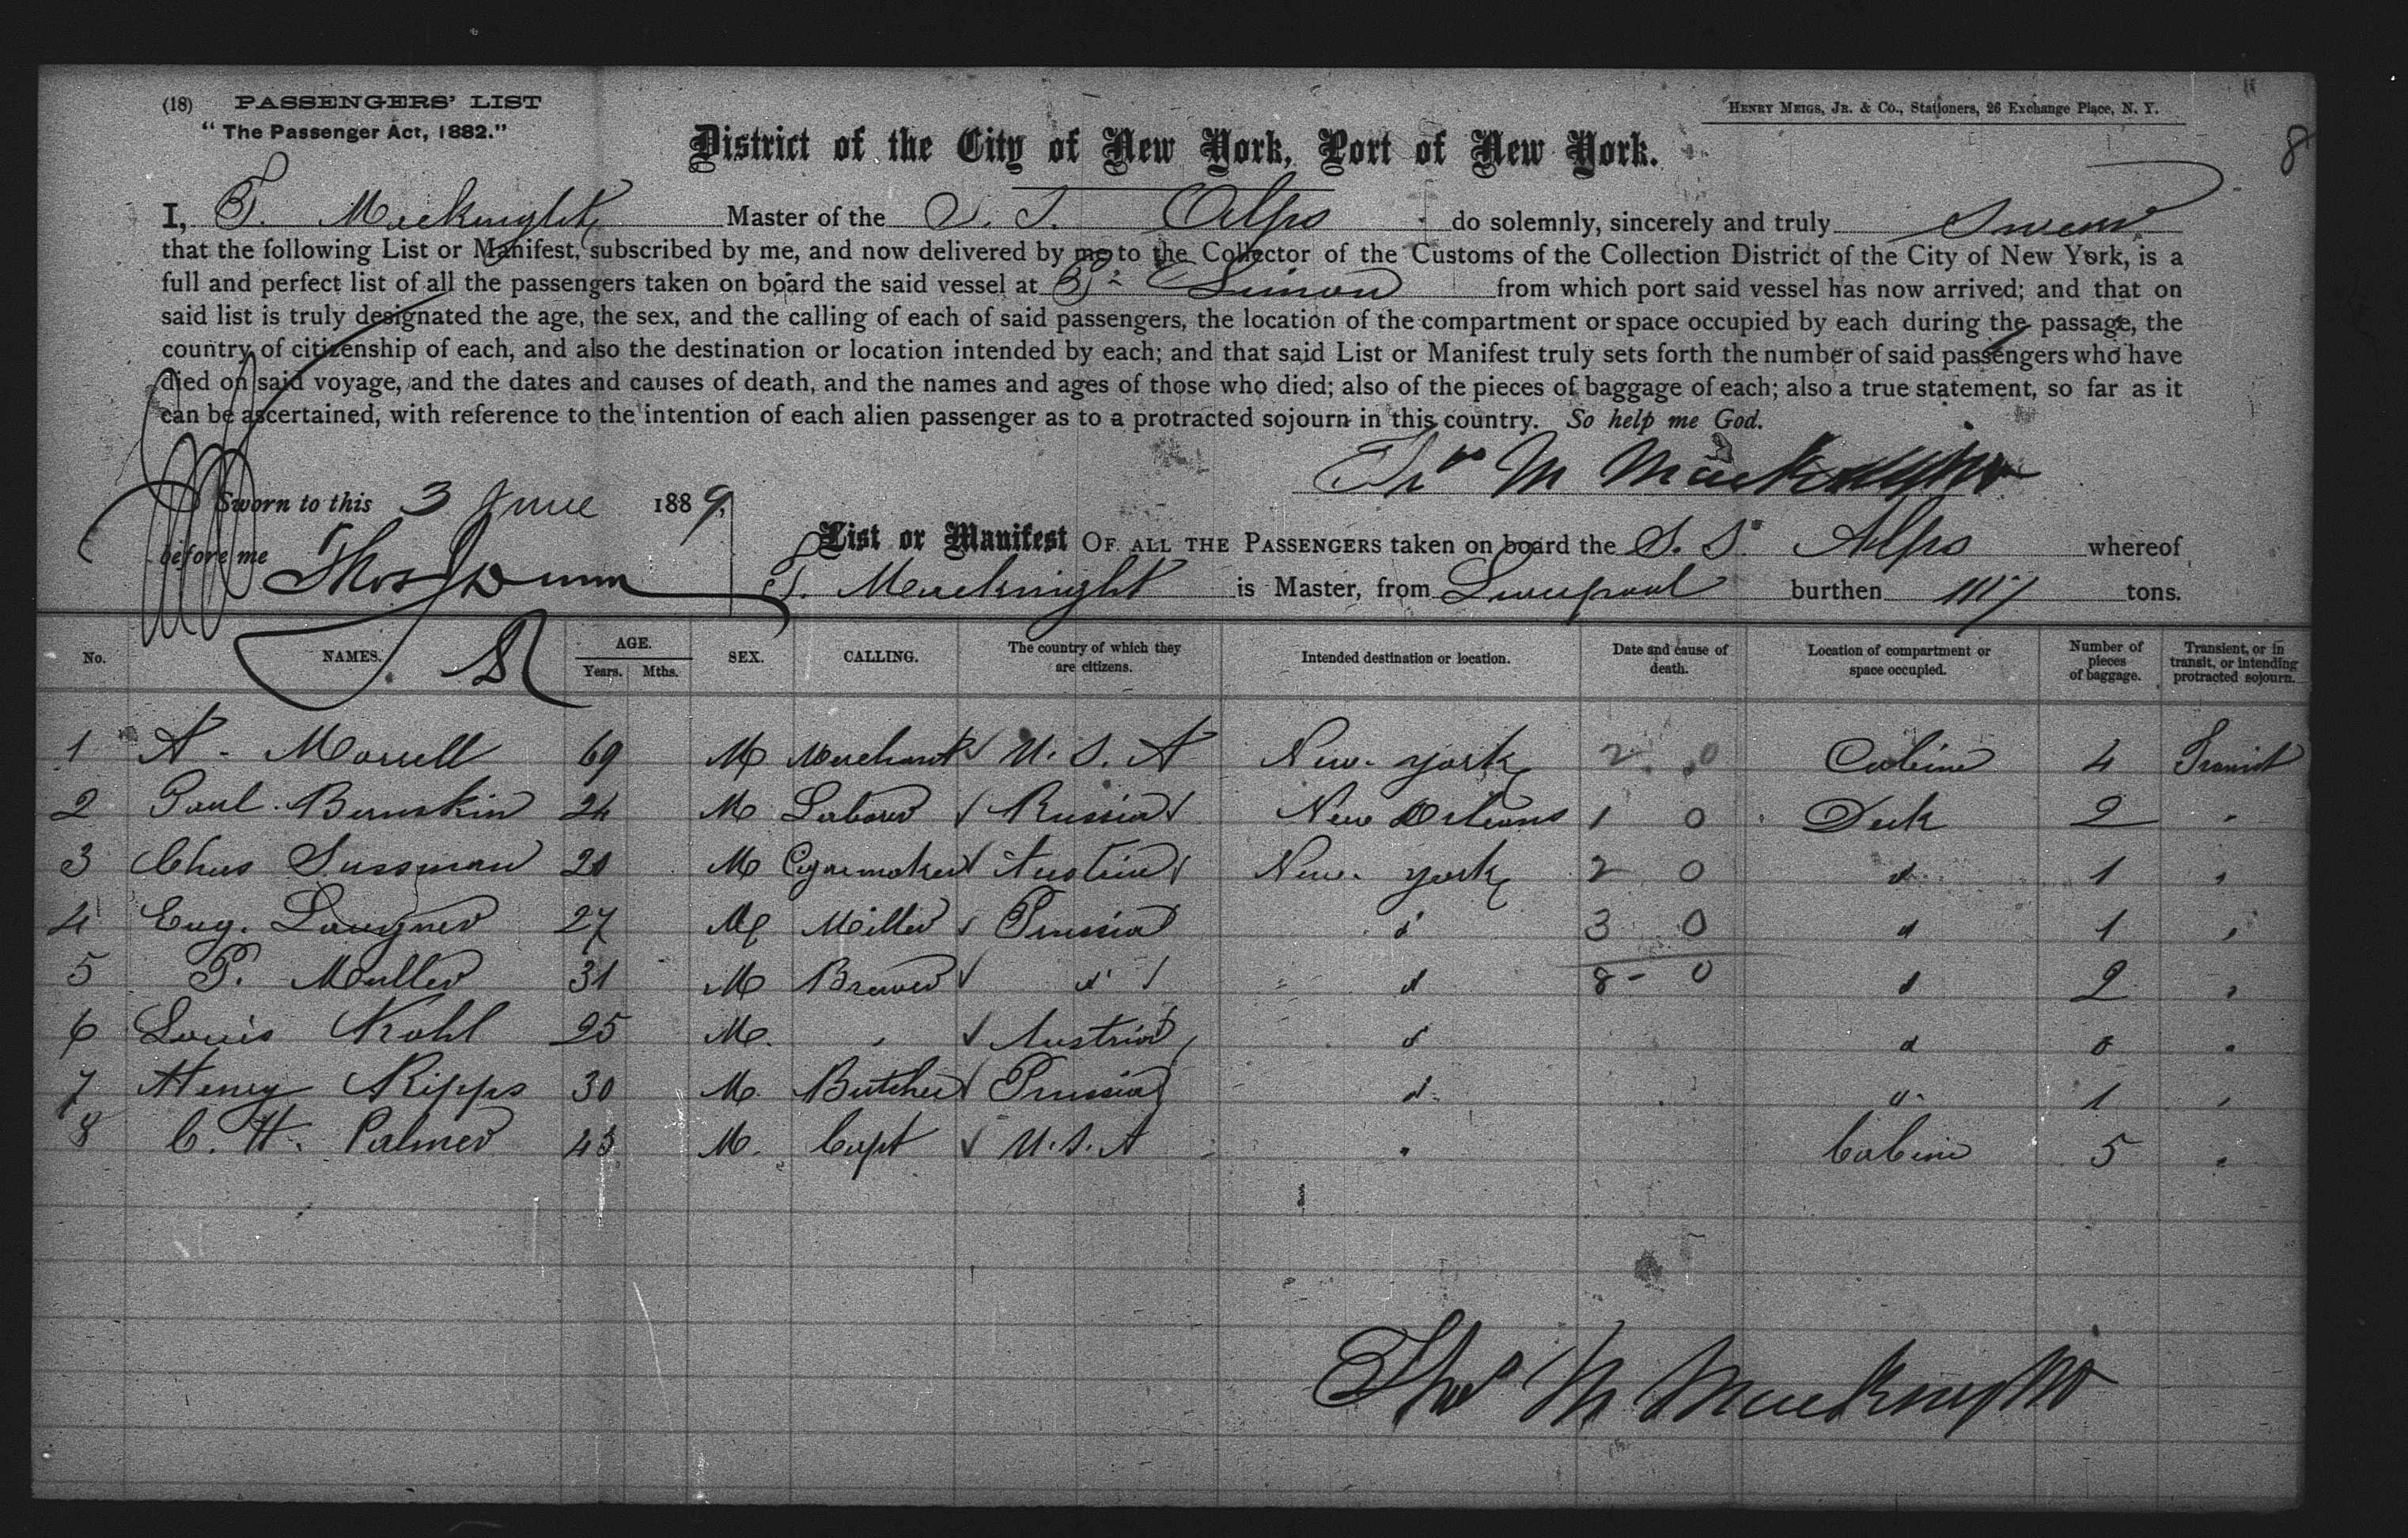 (18) PASSENGERS' LIST
"The Passenger Act, 1882."
HENRY MEIGS, JR. & CO., Stationers, 26 Exchange Place, N. Y.
8
District of the City of New York, Port of New York.
I, T. Macknight Master of the S. S. Alps do solemnly, sincerely and truly Swear
that the following List or Manifest, subscribed by me, and now delivered by me to the Collector of the Customs of the Collection District of the City of New York, is a
full and perfect list of all the passengers taken on board the said vessel at Pt Limon from which port said vessel has now arrived; and that on
said list is truly designated the age, the sex, and the calling of each of said passengers, the location of the compartment or space occupied by each during the passage, the
country of citizenship of each, and also the destination or location intended by each; and that said List or Manifest truly sets forth the number of said passengers who have
died on said voyage, and the dates and causes of death, and the names and ages of those who died; also of the pieces of baggage of each; also a true statement, so far as it
can be ascertained, with reference to the intention of each alien passenger as to a protracted sojourn in this country. So help me God.
Thos M Macknight
Sworn to this 3 June 1889,
before me Thos Dunn
List or Manifest OF ALL THE PASSENGERS taken on board the S. S. Alps whereof
T. Macknight is Master, from Liverpool burthen 1117 tons.
No. NAMES. AGE. Years. Mths. SEX. CALLING. The country of which they are citizens. Intended destination or location. Date and cause of death. Location of compartment or space occupied. Number of pieces of baggage. Transient, or in transit, or intending protracted sojourn.
1 A. Morrell 69 M Merchant ✓ U. S. A New York 2 0 Cabine 4 Transit
2 Paul Bernskin 24 M Labour ✓ Russia New Orleans 1 0 Deck 2 "
3 Chas Sussman 20 M Cigarmaker ✓ Austria New York 2 0 d 1 "
4 Eug. Laugner 27 M Miller ✓ Prussia d 3 0 d 1 "
5 P. Muller 31 M Brewer ✓ d d 8 - 0 d 2 "
6 Louis Kohl 25 M. " ✓ Austria d d 0 "
7 Henry Ripps 30 M. Butcher ✓ Prussia d d 1 "
8 C. H. Palmer 43 M. Capt ✓ U. S. A " Cabine 5 "
Thos M Macknight